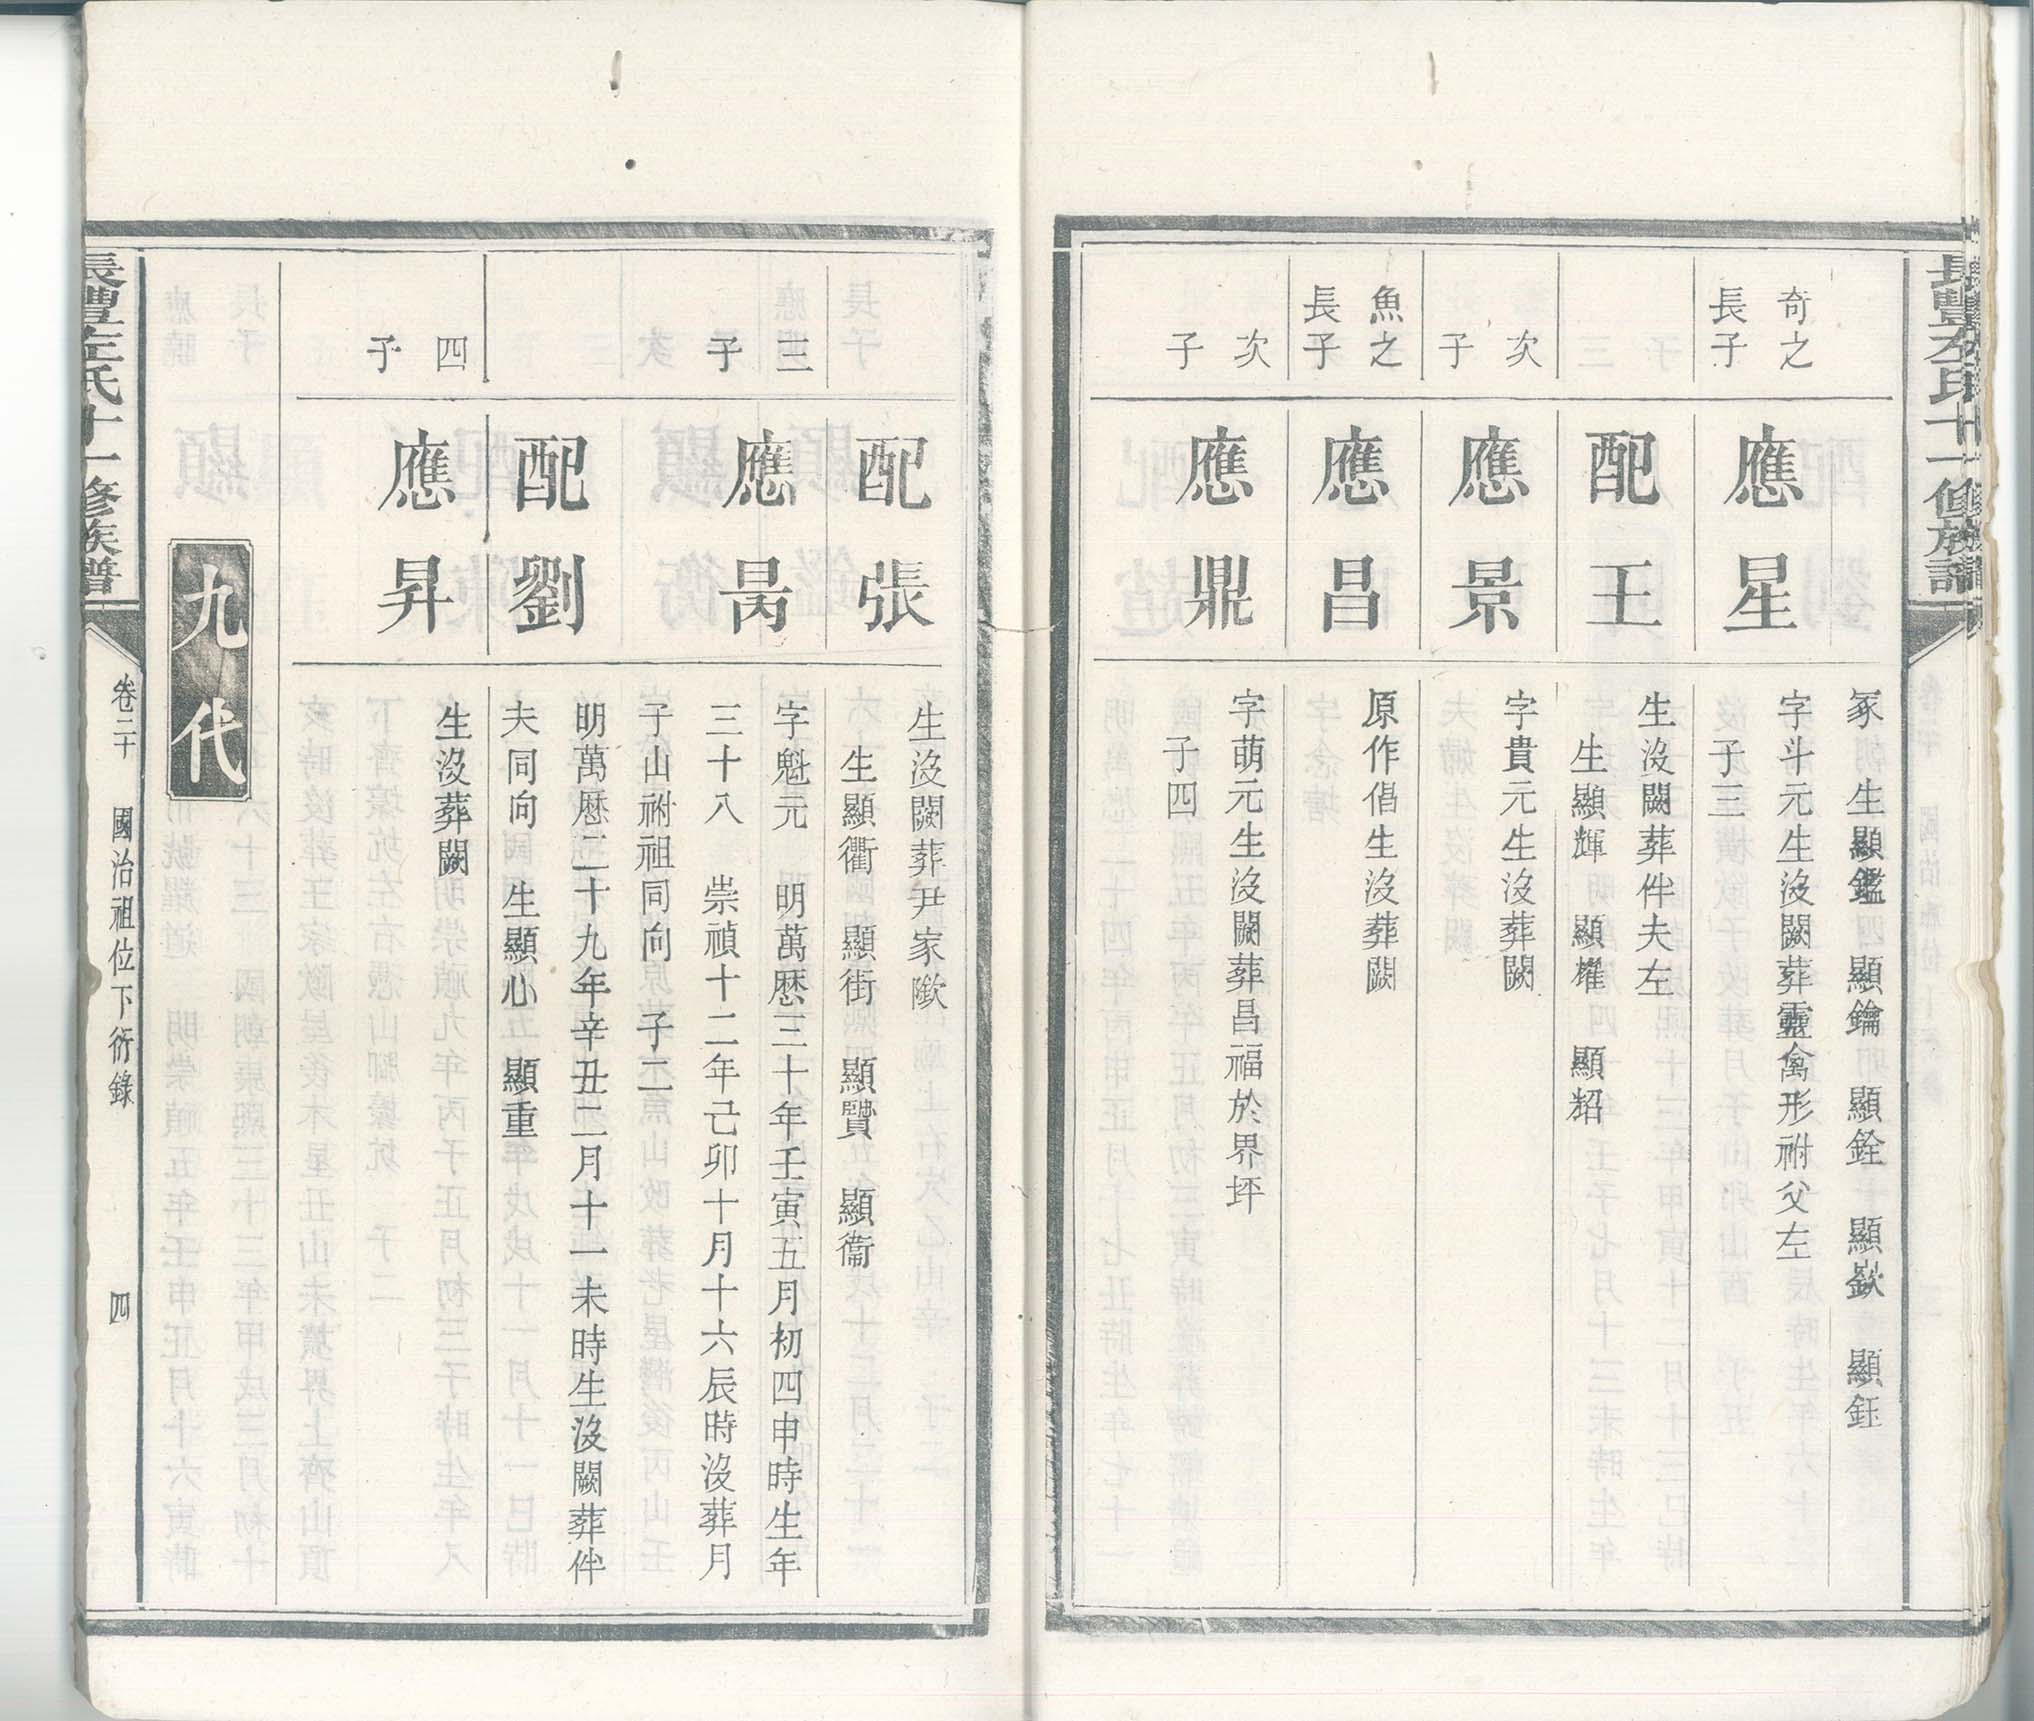 長豐左氏十一修族譜
冢　生顯鑑　顯鑰　顯銓　顯嶔　顯鈺
奇之
長子
應星
字斗元生沒闕葬靈禽形祔父左
子三
配王
生沒闕葬伴夫左
生顯輝　顯耀　顯紹
次
子
應景
字貴元生沒葬闕
魚之
長子
應昌
原作倡生沒葬闕
次
子
應鼎
字萌元生沒闕葬昌福於界坪
子四
配張
生沒闕葬尹家歟
生顯衢　顯街　顯贒　顯衞
三
子
應昺
字魁元　明萬歷三十年壬寅五月初四申時生年
三十八　崇禎十二年己卯十月十六辰時沒葬月
子山祔祖同向　子二
配劉
明萬歷二十九年辛丑二月十一未時生沒闕葬伴
夫同向　生顯心　顯重
四
子
應昇
生沒葬闕
九代
長豐左氏十一修族譜
卷二十　國治祖位下衍錄　四